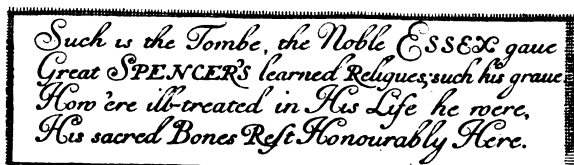 Such is the Tombe, the Noble ESSEX gaue
Great SPENCER'S learned Reliques; such his graue
How 'ere ill-treated in His Life he were,
His sacred Bones Rest Honourably Here.